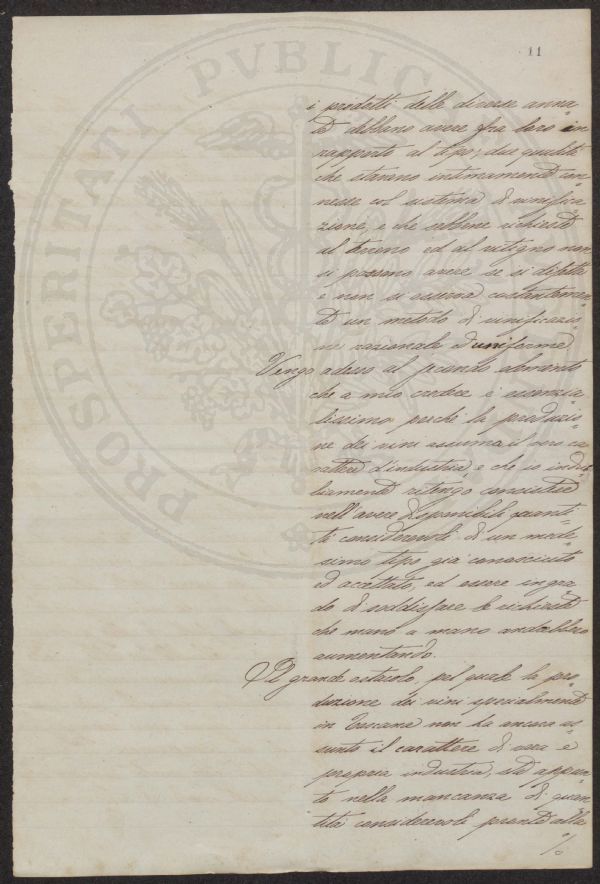 11
i prodotti delle diverse anna-
te debbano avere fra loro in
rapporto al tipo; due qualità
che stanno intimamente con-
nesse col sistema di vinifica-
zione, e che sebbene richieste
al terreno ed al vitigno non
si possono avere se si difetta
e non si osserva costantemen-
te un metodo di vinificazio-
ne razionale ed uniforme
Vengo adesso al secondo elemento
che a mio credere è essenzia-
lissimo perchè la produzio-
ne dei vini assuma il vero ca-
rattere d'industria, e che io
ritengo consistere
nell'avere disponibili quanti-
tà considerevoli di un mede-
simo tipo già conosciuto
ed accettato, ed essere in gra-
do di soddisfare le richieste
che mano a mano andrebbero
aumentando.
Il grande ostacolo, pel quale la pro-
duzione dei vini specialmente
in Toscana non ha ancora as-
sunto il carattere di vera e
propria industria, sta appun-
to nella mancanza di quan-
tità considerevoli pronte alla
%
PROSPERITATI PVBLIC